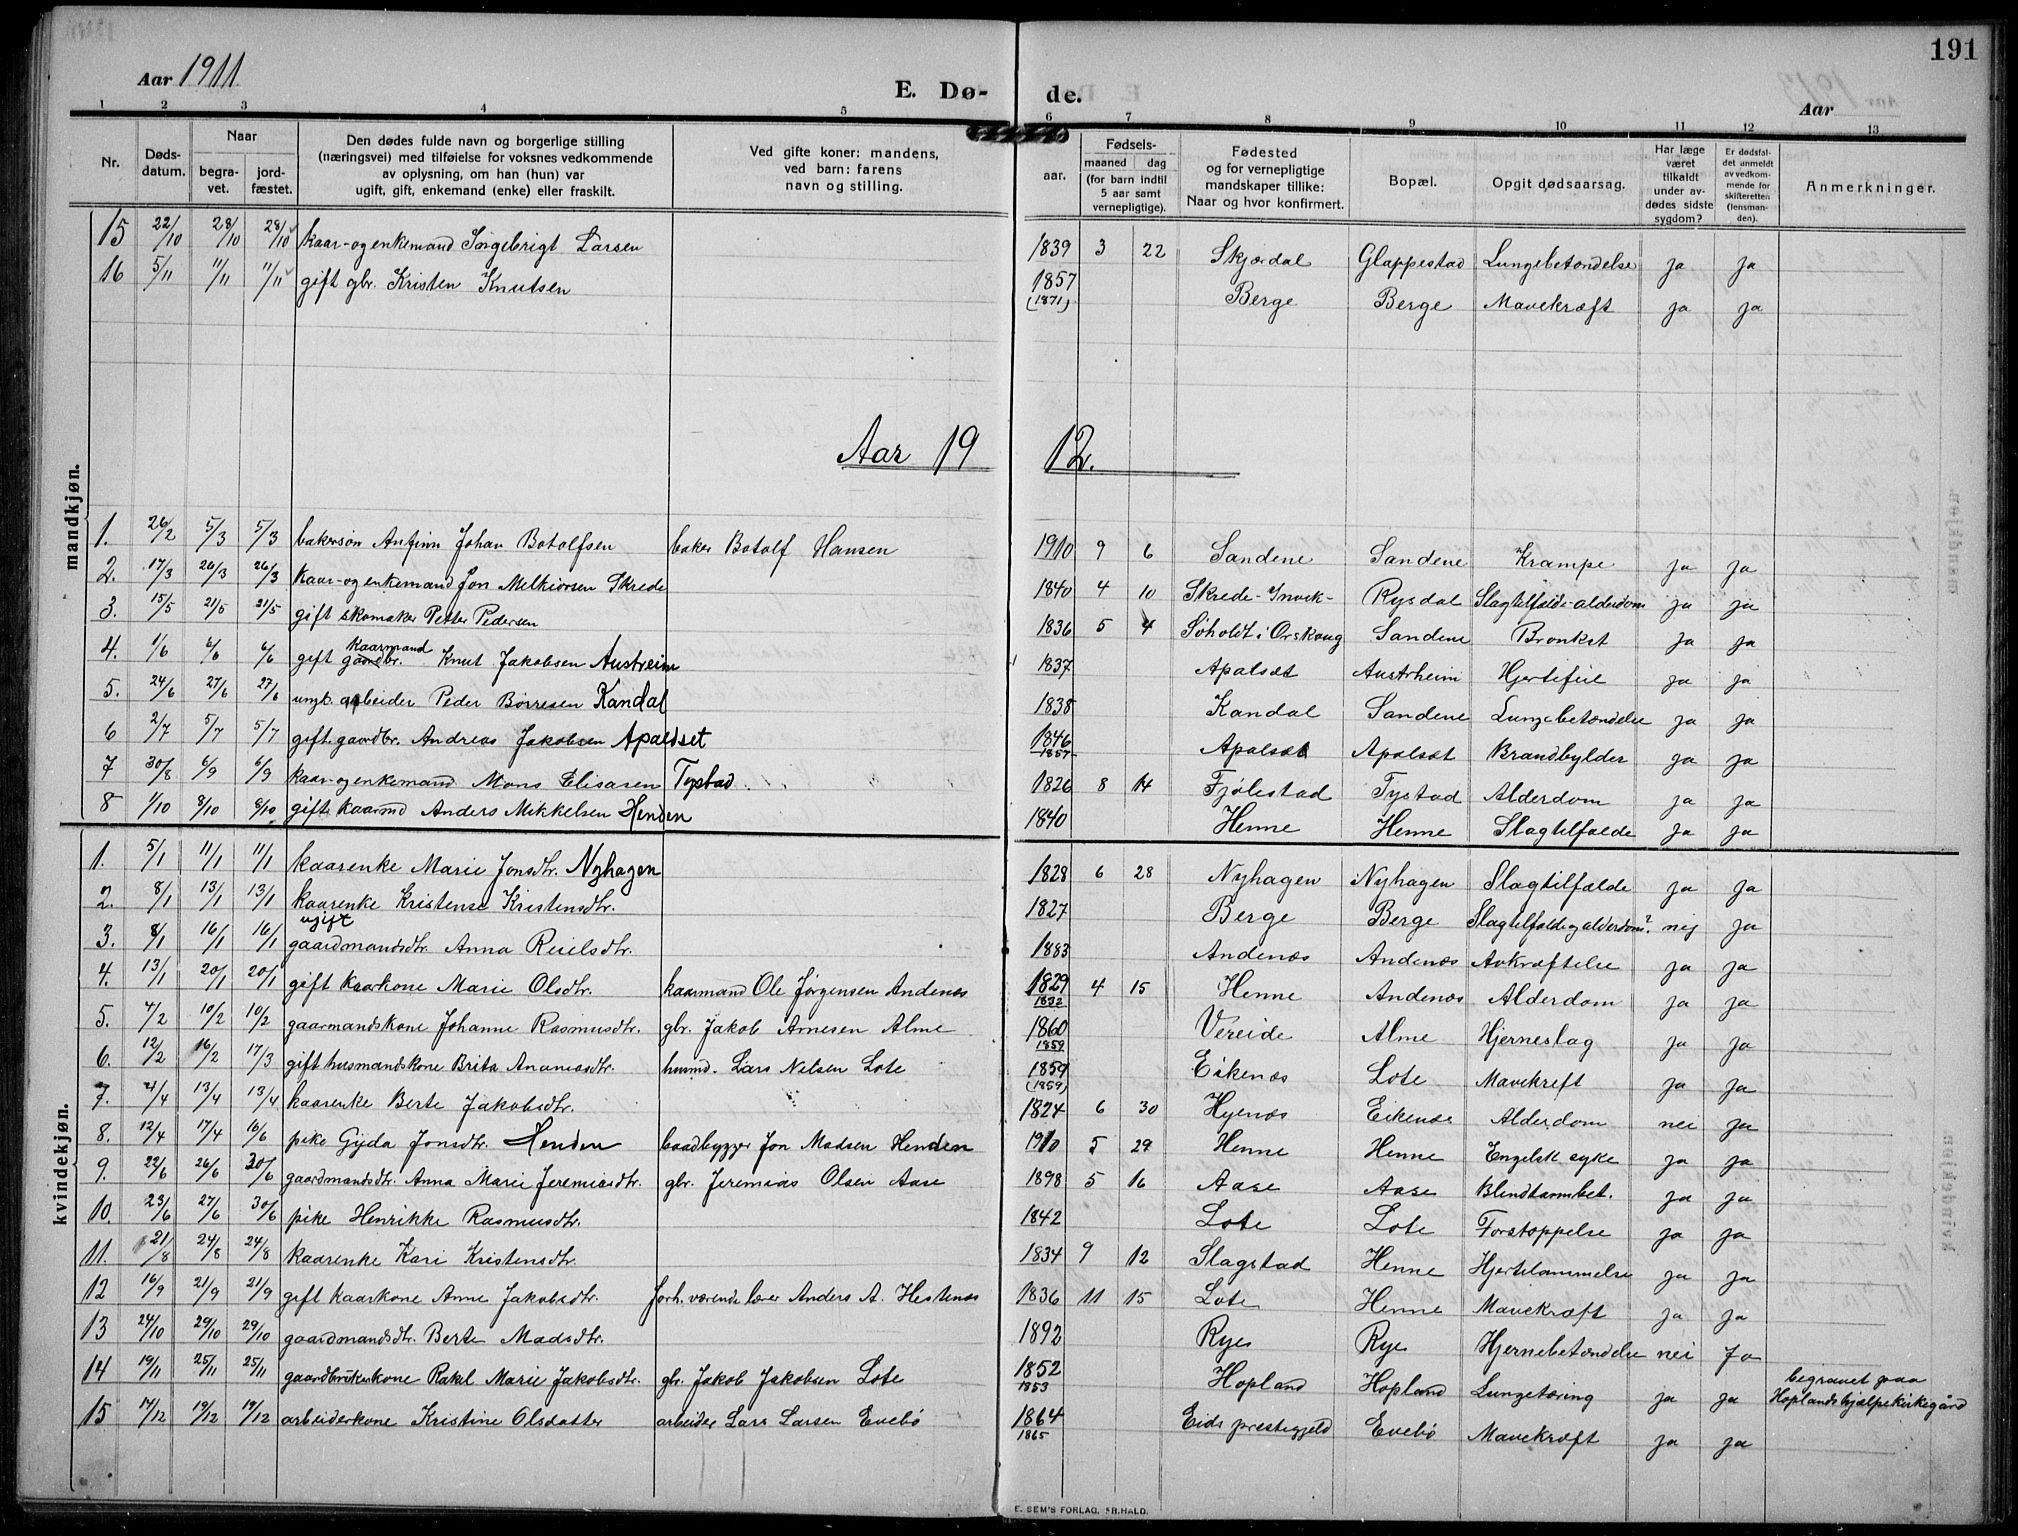 191
Aar 1911
E. Dø- de.
Aar
1 2 3 4 5 6 7 8 9 10 11 12 13
Nr.
Døds-
datum.
Naar
begra-
vet.
jord-
fæstet.
Den dødes fulde navn og borgerlige stilling
(næringsvei) med tilføielse for voksnes vedkommende
av oplysning, om han (hun) var
ugift, gift, enkemand (enke) eller fraskilt.
Ved gifte koner: mandens,
ved barn: farens
navn og stilling.
aar.
Fødsels-
maaned dag
(for barn indtil
5 aar samt
vernepligtige).
Fødested
og for vernepligtige
mandskaper tillike:
Naar og hvor konfirmert.
Bopæl.
Opgit dødsaarsag.
Har læge
været
tilkaldt
under av-
dødes sidste
sygdom?
Er dødsfal-
det anmeldt
av vedkom-
mende for
skifteretten
(lensman-
den).
Anmerkninger.
mandkjøn.
15 22/10 28/10 28/10 kaar- og enkemand Ingebrigt Larsen 1839 3 22 Skjærdal Glappestad Lungebetændelse ja ja
16 5/11 11/11 11/11 gift gbr. Kristen Knutsen 1857 (1871) Berge Berge Mavekræft ja ja
Aar 19 12.
1. 26/2 5/3 5/3 bakersøn Anfinn Johan Botolfsen baker Botolf Hansen 1910 9 6 Sandene Sandene Krampe ja ja
2. 17/3 26/3 26/3 kaar- og enkemand Jon Melkiorsen Skrede 1840 4 10 Skrede - Invik - Rysdal Slagtilfælde - alderdom ja ja
3. 15/5 21/5 21/5 gift skomaker Petter Pedersen 1836 5 4 Søholdt i Ørskoug Sandene Bronkit ja ja
4. 1/6 6/6 6/6 gift gaardbr. kaarmand Knut Jakobsen Austreim 1837 Apalsæt Austrheim Hjertefeil ja ja
5. 24/6 27/6 27/6 ungk. arbeider Peder Børresen Kandal 1838 Kandal Sandene Lungebetændelse ja ja
6 2/7 5/7 5/7 gift. gaardbr. Andreas Jakobsen Apaldset 1846 1857 Apalsæt Apalsæt Brandbylder ja ja
7 30/8 6/9 6/9 kaar- og enkemand Mons Elisæsen Tystad 1826 8 14 Fjølestad Tystad Alderdom ja ja
8 1/10 8/10 8/10 gift. kaarmd Anders Mikkelsen Henden 1840 Henne Henne Slagtilfælde ja ja
kvindekjøn.
1. 5/1 11/1 11/1 kaarenke Marie Jonsdtr. Nyhagen 1828 6 28 Nyhagen Nyhagen Slagtilfælde ja ja
2. 8/1 13/1 13/1 kaarenke Kristense Kristensdtr. 1827 Berge Berge Slagtilfælde og alderdom? nej ja
3. 8/1 16/1 16/1 ugift gaardmandsdtr. Anna Reielsdtr. 1883 Andenæs Andenæs Avkræftelse ja ja
4. 13/1 20/1 20/1 gift kaarkone Marie Olsdtr. kaarmand Ole Jørgensen Andenæs 1829 1832 4 15 Henne Andenæs Alderdom ja ja
5. 4/2 10/2 10/2 gaarmandskone Johanne Rasmusdtr. gbr. Jakob Arnesen Alme 1860 1859 Vereide Alme Hjerneslag ja ja
6. 12/2 16/2 17/3 gift husmandskone Brita Ananiasdtr. husmd. Lars Nilsen Lote 1859 (1859) Eikenæs Lote Mavekreft ja ja
7. 4/4 13/4 13/4 kaarenke Berte Jakobsdtr. 1824 6 30 Hyenæs Eikenæs Alderdom nei ja
8. 12/4 17/4 16/6 pike Gyda Jonsdtr. Henden baadbygger Jon Madsen Henden 1910 5 29 Henne Henne Engelsk syke ja ja
9. 22/6 26/6 30/6 gaardmandsdtr. Anna Marie Jeremiasdtr. gbr. Jeremias Olsen Aase 1898 5 16 Aase Aase Blindtarmbet. ja ja
10. 23/6 27/6 30/6 pike Henrikke Rasmusdtr. 1842 Lote Lote Forstoppelse ja ja
11. 21/8 24/8 24/8 kaarenke Kari Kristensdtr. 1834 9 12 Slagstad Henne Hjertelammelse ja ja
12 16/9 21/9 21/9 gift kaarkone Anne Jakobsdtr. forh. værende lærer Anders A. Hestenæs 1836 11 15 Lote Henne Mavekræft ja ja
13 24/10 29/10 29/10 gaardmandsdtr. Berte Madsdtr. 1892 Ryes Rye Hjernebetændelse nei Ja
14 19/11 25/11 25/11 gaardbrukerkone Rakel Marie Jakobsdtr. gbr. Jakob Jakobsen Lote 1852 1853 Hopland Hopland Lungetæring ja ja begravet paa Hoplands hjælpekirkegård
15 14/12 19/12 19/12 arbeiderkone Kristine Olsdatter arbeider Lars Larsen Evebø 1864 1865 Eids prestegjeld Evebø Mavekræft ja ja
E. SEM'S FORLAG, FR.HALD.